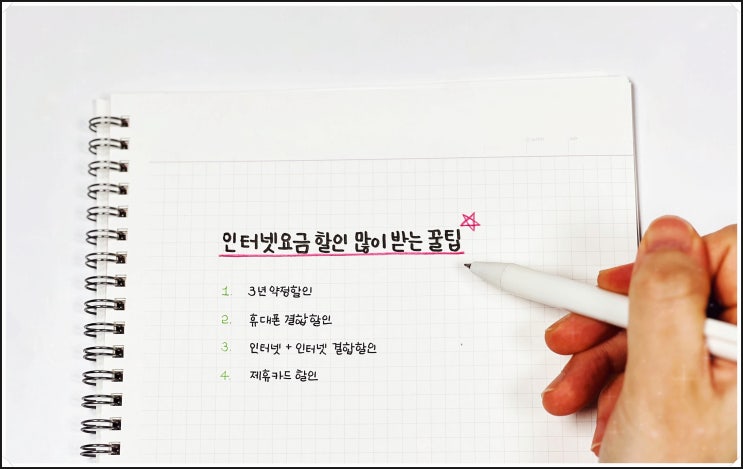 인터넷요금 할인 많이 받는 꿀팁
1. 3년 약정할인
2. 휴대폰 결합 할인
3. 인터넷 + 인터넷 결합할인
4. 제휴카드 할인